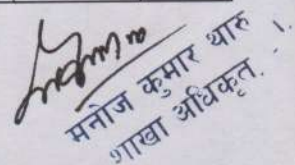 मनोज कुमार थारु
शाखा अधिकृत